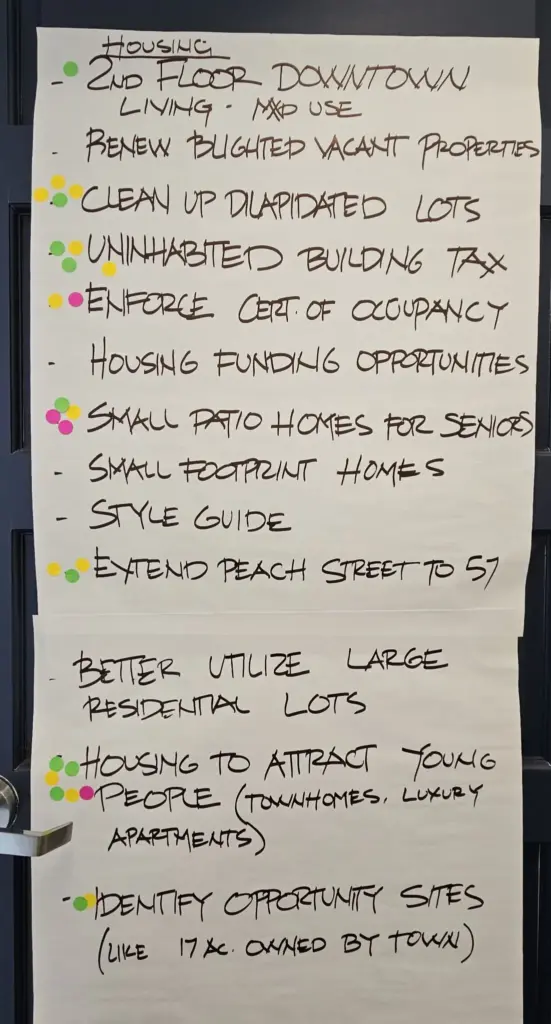 HOUSING
- 2ND FLOOR DOWNTOWN
LIVING - MXD USE
- RENEW BLIGHTED VACANT PROPERTIES
- CLEAN UP DILAPIDATED LOTS
- UNINHABITED BUILDING TAX
- ENFORCE CERT. OF OCCUPANCY
- HOUSING FUNDING OPPORTUNITIES
- SMALL PATIO HOMES FOR SENIORS
- SMALL FOOTPRINT HOMES
- STYLE GUIDE
- EXTEND PEACH STREET TO 57
- BETTER UTILIZE LARGE
RESIDENTIAL LOTS
- HOUSING TO ATTRACT YOUNG
PEOPLE (TOWNHOMES, LUXURY
APARTMENTS)
- IDENTIFY OPPORTUNITY SITES
(LIKE 17 AC. OWNED BY TOWN)